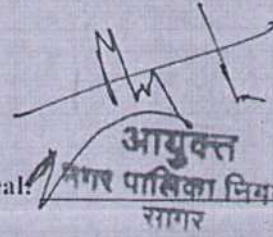 आयुक्त
eal: नगर पालिका निग
सागर